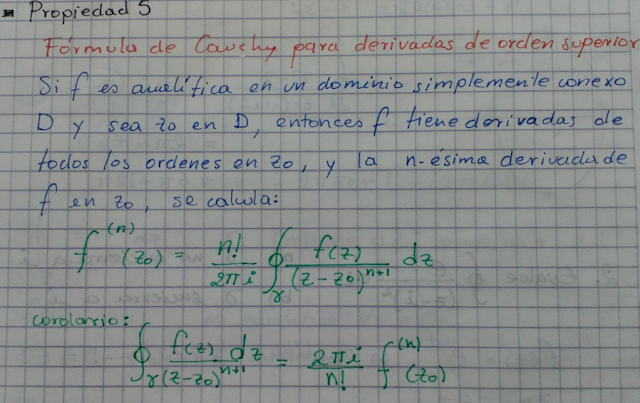 - Propiedad 5
Fórmula de Cauchy para derivadas de orden superior
Si f es analítica en un dominio simplemente conexo
D y sea z0 en D, entonces f tiene derivadas de
todos los ordenes en z0, y la n-ésima derivada de
f en z0, se calcula:
f^(n)(z0) = n!/(2πi) ∮_γ f(z)/(z-z0)^(n+1) dz
corolario:
∮_γ f(z) dz/(z-z0)^(n+1) = 2πi/n! f^(n)(z0)